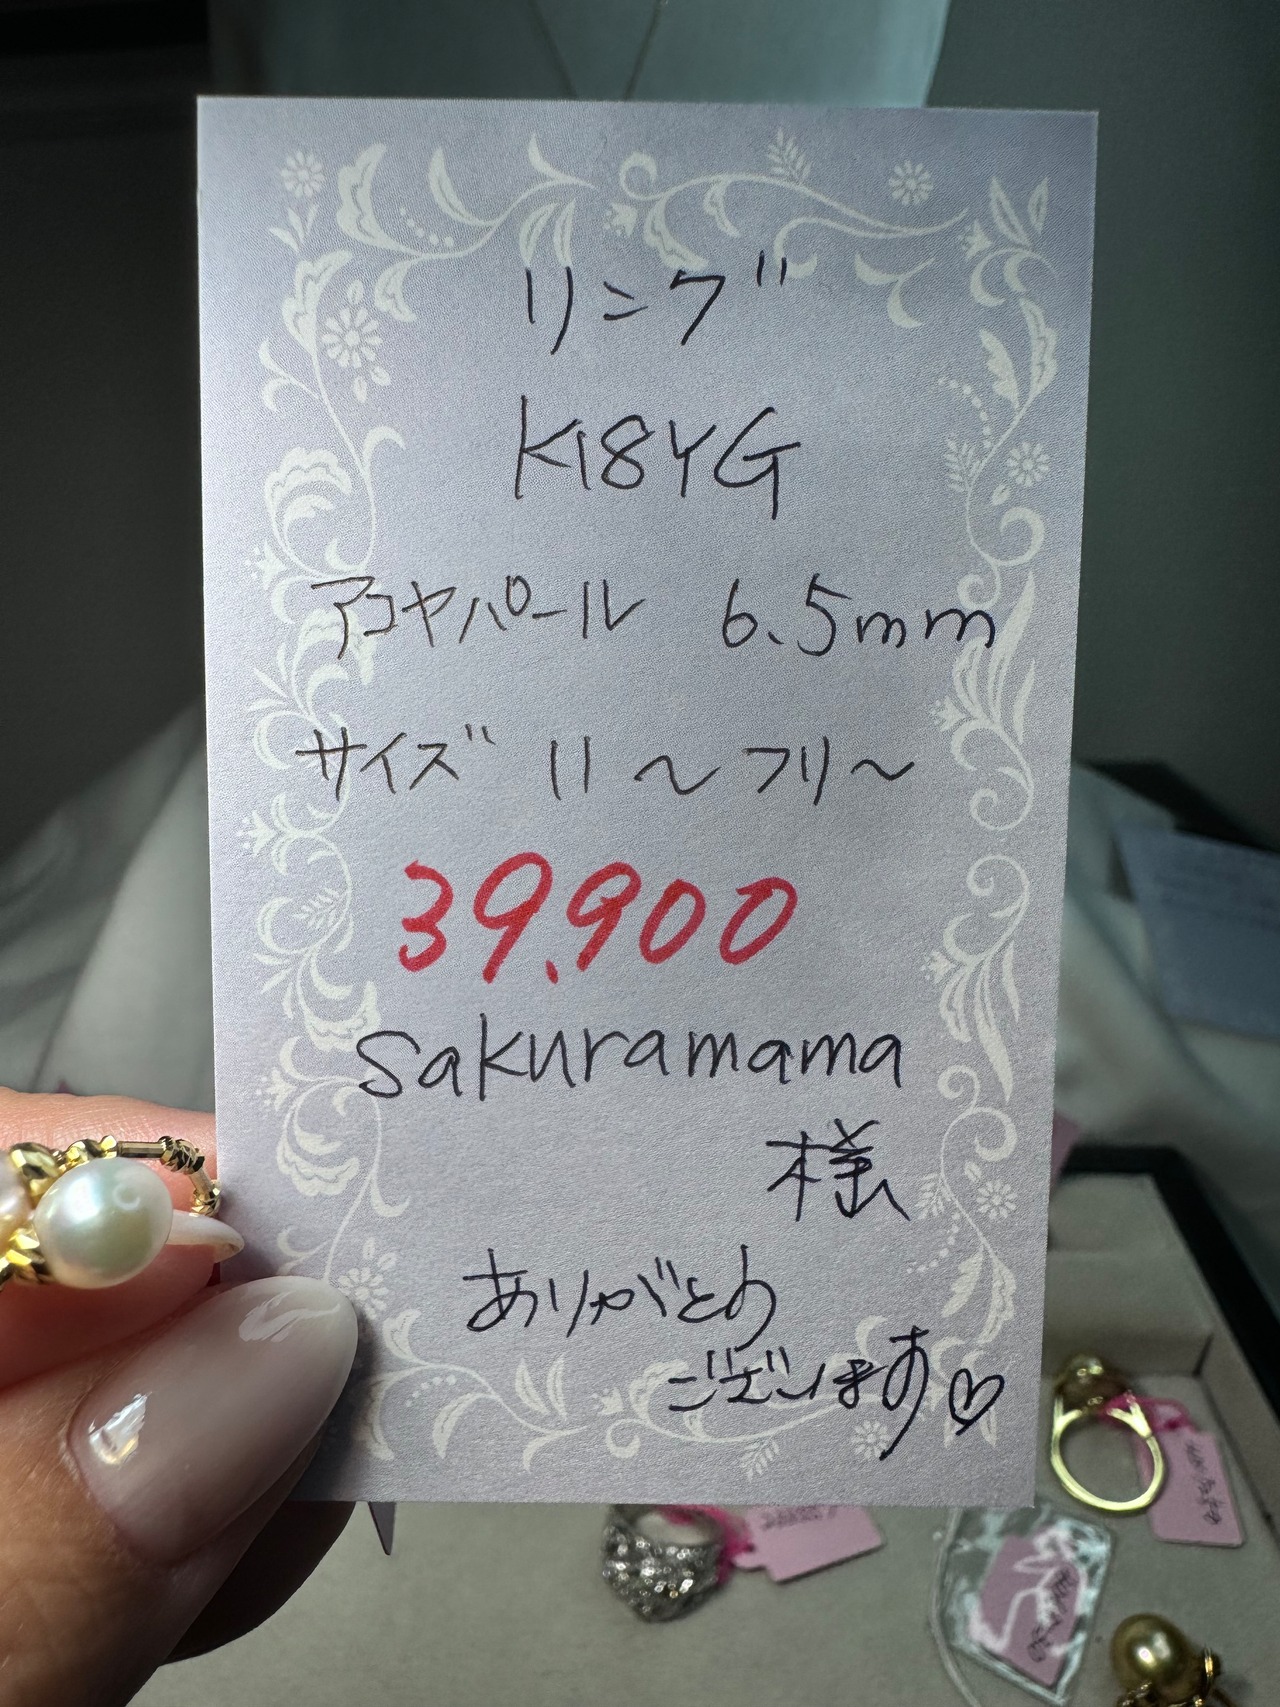 リング
K18YG
アコヤパール 6.5mm
サイズ 11〜フリ〜
39,900
sakuramama
様
ありがとう
ございます♡